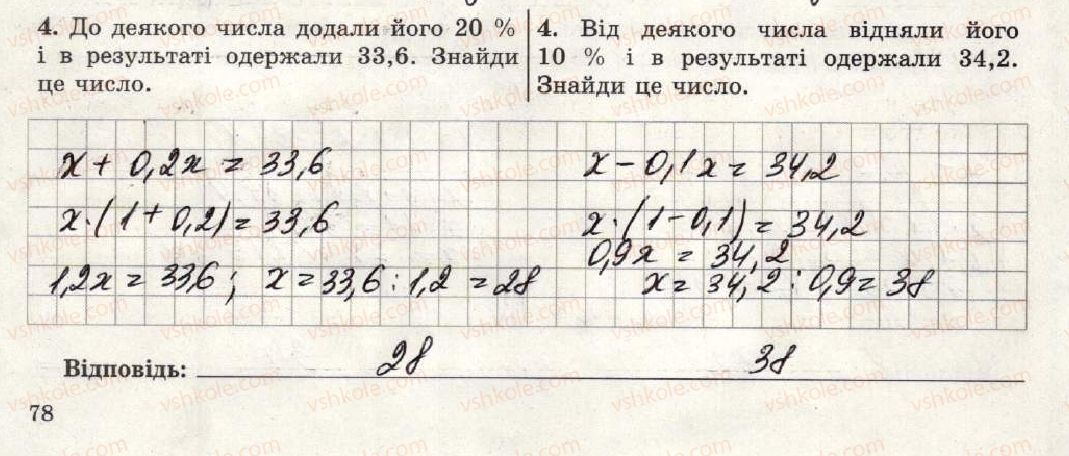 4. До деякого числа додали його 20 %
і в результаті одержали 33,6. Знайди
це число.
4. Від деякого числа відняли його
10 % і в результаті одержали 34,2.
Знайди це число.
x + 0,2x = 33,6
x·(1 + 0,2) = 33,6
1,2x = 33,6 ; x = 33,6 : 1,2 = 28
x − 0,1x = 34,2
x·(1 − 0,1) = 34,2
0,9x = 34,2
x = 34,2 : 0,9 = 38
Відповідь: 28 38
78